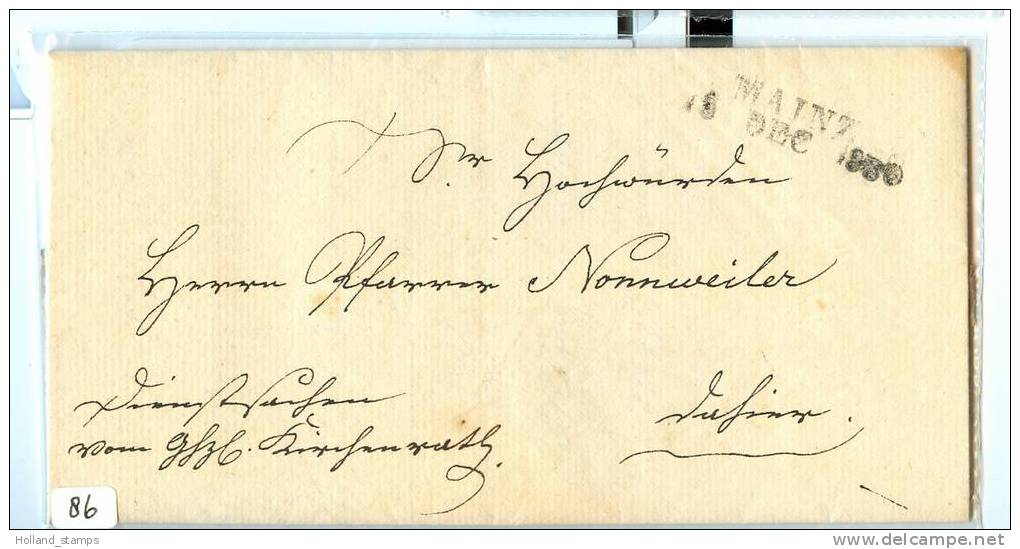 MAINZ
16 DEC 1830
Sr Hochwürden
Herrn Pfarrer Nonnweiler
Dienstsachen
dahier.
vom Ghzl. Kirchenrath.
86
Holland_stamps
www.delcampe.net